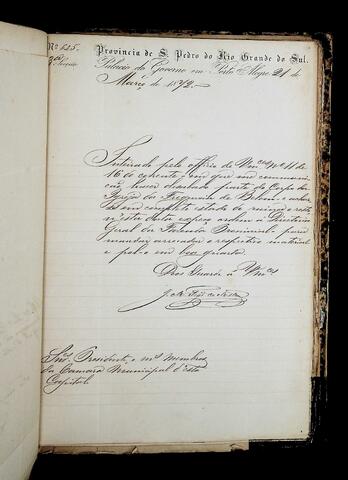 Nº 125.
Provincia de S. Pedro do Rio Grande do Sul.
Palacio do Governo em Porto Alegre 21 de
Março de 1872.
Inteirado pelo officio de Vmces Nº 41 de
16 do corrente, em que me communi-
cão haver desabado parte do Corpo da
Igreja da Freguezia de Belem, e achar-
se em completo estado de ruina o resto
n'esta data expeço ordem á Directoria
Geral da Fazenda Provincial para
mandar arrecadar o respectivo material
e pol-o em boa guarda.
Deos Guarde á Vmces
Snres Presidente, e mais Membros
da Camara Municipal d'esta
Capital.